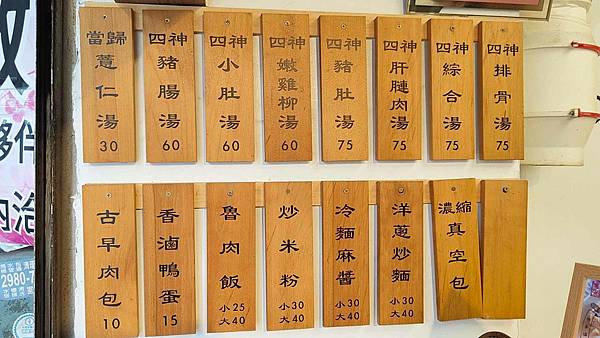 當歸薏仁湯 30
四神豬腸湯 60
四神小肚湯 60
四神嫩雞柳湯 60
四神豬肚湯 75
四神肝膁肉湯 75
四神綜合湯 75
四神排骨湯 75
古早肉包 10
香滷鴨蛋 15
魯肉飯 小25 大40
炒米粉 小30 大40
冷麵麻醬 小30 大40
洋蔥炒麵 小30 大40
濃縮真空包
夥伴
內洽
2980-7